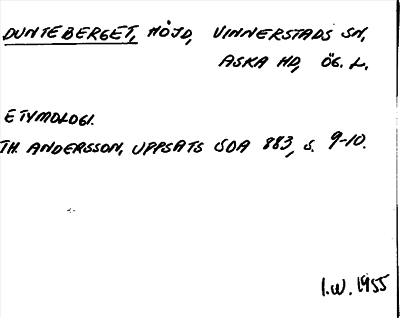 DUNTEBERGET, HÖJD, VINNERSTADS SN,
ASKA HD, ÖG. L.
ETYMOLOGI.
TH. ANDERSSON, UPPSATS SOA 883, S. 9-10.
I.W. 1955